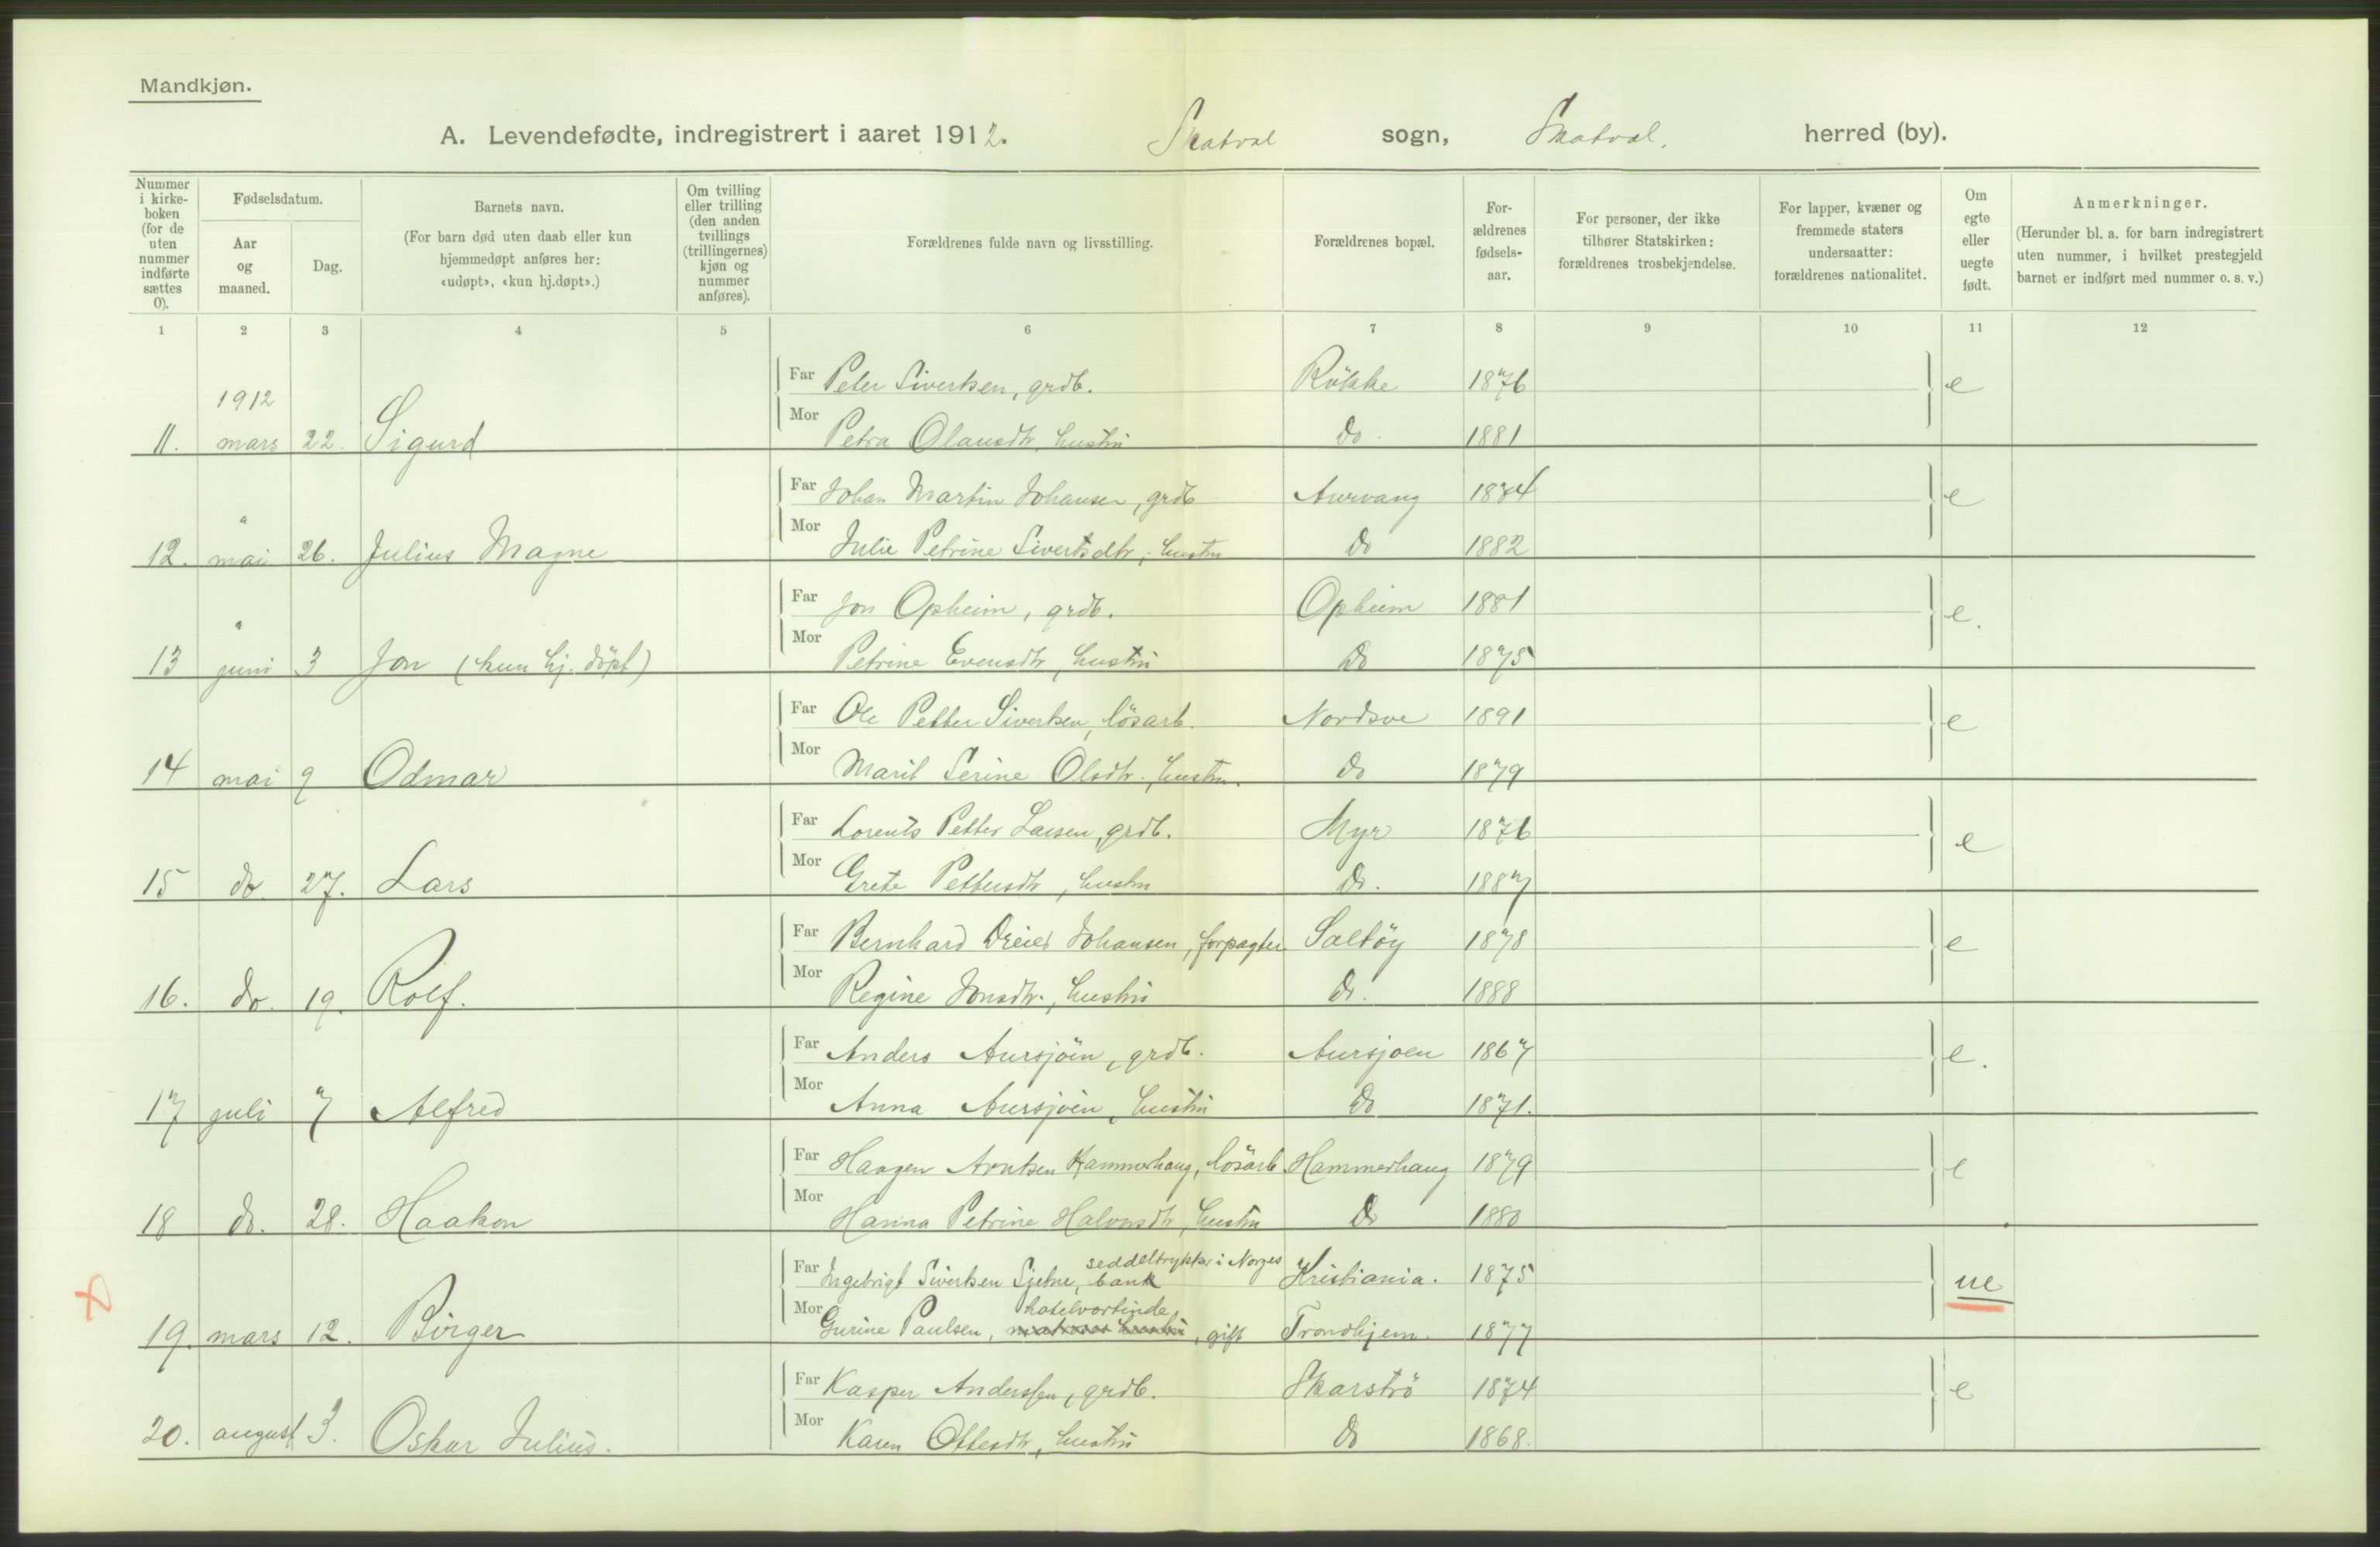 Mandkjøn.
A. Levendefødte, indregistrert i aaret 1912. Skatval sogn, Skatval. herred (by).
Nummer i kirke-boken (for de uten nummer indførte sættes 0).
Fødselsdatum.
Aar og maaned.
Dag.
Barnets navn.
(For barn død uten daab eller kun hjemmedøpt anføres her: «udøpt», «kun hj.døpt».)
Om tvilling eller trilling (den anden tvillings (trillingernes) kjøn og nummer anføres).
Forældrenes fulde navn og livsstilling.
Forældrenes bopæl.
For-ældrenes fødsels-aar.
For personer, der ikke tilhører Statskirken: forældrenes trosbekjendelse.
For lapper, kvæner og fremmede staters undersaatter: forældrenes nationalitet.
Om egte eller uegte født.
Anmerkninger.
(Herunder bl. a. for barn indregistrert uten nummer, i hvilket prestegjeld barnet er indført med nummer o. s. v.)
1 2 3 4 5 6 7 8 9 10 11 12
1912
Far Peter Sivertsen, grdb. Rökke 1876 e
11. mars 22. Sigurd Mor Petra Olausdtr. hustru do. 1881
Far Johan Martin Johansen, grdb Aurvang 1884 e
12. " mai 26. Julius Magne Mor Julie Petrine Sivertsdtr, hustru do 1882
Far Jon Opheim, grdb. Opheim 1881 e.
13 " juni 3 Jon (kun hj. döpt) Mor Petrine Evensdtr, hustru do 1875
Far Ole Petter Sivertsen, lösarb. Nordsve 1891 e
14 mai 9 Odmar Mor Marit Serine Olsdtr., hustru. do 1879
Far Lorents Petter Larsen, grdb. Myr 1876 e
15 do 27. Lars Mor Grete Pettersdtr, hustru do. 1887
Far Bernhard Dreier Johansen, forpagter Saltöy 1878 e
16. do. 19. Rolf. Mor Regine Jonsdtr., hustru do. 1888
Far Anders Aursjöen, grdb. Aursjoen 1867 e.
17 juli 7 Alfred Mor Anna Aursjöen, hustru do 1871.
Far Haagen Arntsen Hammerhaug, lösarb Hammerhaug 1879 e
18 do. 28. Haakon Mor Hanna Petrine Halvorsdtr, hustru do 1880
seddeltrykker i Norges
Far Ingebrigt Sivertsen Sjetne, bank Kristiania. 1875 ue
hotelvertinde,
19. mars 12. Birger Mor Gurine Paulsen, matroses hustru, gift Trondhjem. 1877
Far Kasper Anderssen, grdb. Skarströ 1874 e
20. august 3. Oskar Julius. Mor Karen Ottesdtr, hustru do 1868.